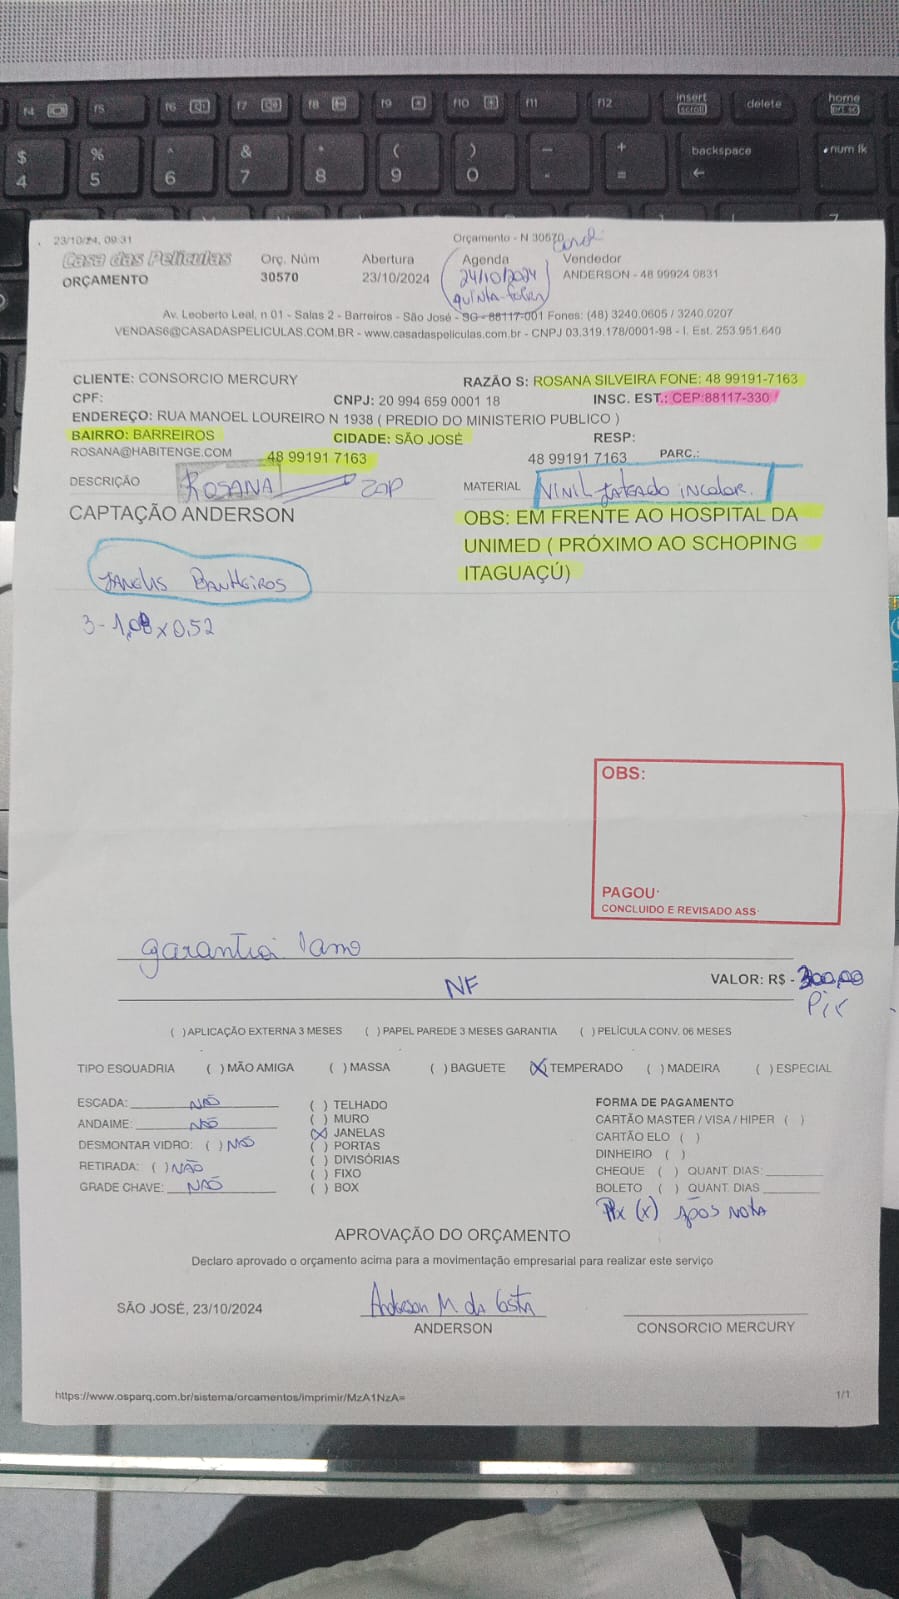 F4 F5 F6 F7 F8 F9 F10 F11 F12 insert scroll delete home
$ 4 % 5 ^ 6 & 7 * 8 ( 9 ) 0 - + = backspace num lk
23/10/24, 09:31 Orçamento - N 30570
Casa das Películas Orç. Núm Abertura Agenda Vendedor
ORÇAMENTO 30570 23/10/2024 24/10/2024 ANDERSON - 48 99924 0831
quinta-feira
Av. Leoberto Leal, n 01 - Salas 2 - Barreiros - São José - SC - 88117-001 Fones: (48) 3240.0605 / 3240.0207
VENDAS6@CASADASPELICULAS.COM.BR - www.casadaspeliculas.com.br - CNPJ 03.319.178/0001-98 - I. Est. 253.951.640
CLIENTE: CONSORCIO MERCURY RAZÃO S: ROSANA SILVEIRA FONE: 48 99191-7163
CPF: CNPJ: 20 994 659 0001 18 INSC. EST.: CEP:88117-330
ENDEREÇO: RUA MANOEL LOUREIRO N 1938 ( PREDIO DO MINISTERIO PUBLICO )
BAIRRO: BARREIROS CIDADE: SÃO JOSÉ RESP:
ROSANA@HABITENGE.COM 48 99191 7163 48 99191 7163 PARC.:
DESCRIÇÃO ROSANA ZAP MATERIAL VINIL jateado incolor.
CAPTAÇÃO ANDERSON OBS: EM FRENTE AO HOSPITAL DA
UNIMED ( PRÓXIMO AO SCHOPING
ITAGUAÇÚ)
Banheiros
3 - 1,08 x 0,52
OBS:
PAGOU:
CONCLUIDO E REVISADO ASS:
garantia 1 ano
NF VALOR: R$ - 300,00
Pix
( ) APLICAÇÃO EXTERNA 3 MESES ( ) PAPEL PAREDE 3 MESES GARANTIA ( ) PELÍCULA CONV. 06 MESES
TIPO ESQUADRIA ( ) MÃO AMIGA ( ) MASSA ( ) BAGUETE (X) TEMPERADO ( ) MADEIRA ( ) ESPECIAL
ESCADA: NÃO ( ) TELHADO FORMA DE PAGAMENTO
ANDAIME: NÃO ( ) MURO CARTÃO MASTER / VISA / HIPER ( )
(X) JANELAS CARTÃO ELO ( )
DESMONTAR VIDRO: ( ) NÃO ( ) PORTAS DINHEIRO ( )
RETIRADA: ( ) NÃO ( ) DIVISÓRIAS CHEQUE ( ) QUANT. DIAS:
GRADE CHAVE: NÃO ( ) FIXO BOLETO ( ) QUANT. DIAS
( ) BOX Pix (x) Após NOTA
APROVAÇÃO DO ORÇAMENTO
Declaro aprovado o orçamento acima para a movimentação empresarial para realizar este serviço
SÃO JOSÉ, 23/10/2024 Anderson M da Costa
ANDERSON CONSORCIO MERCURY
https://www.osparq.com.br/sistema/orcamentos/imprimir/MzA1NzA= 1/1